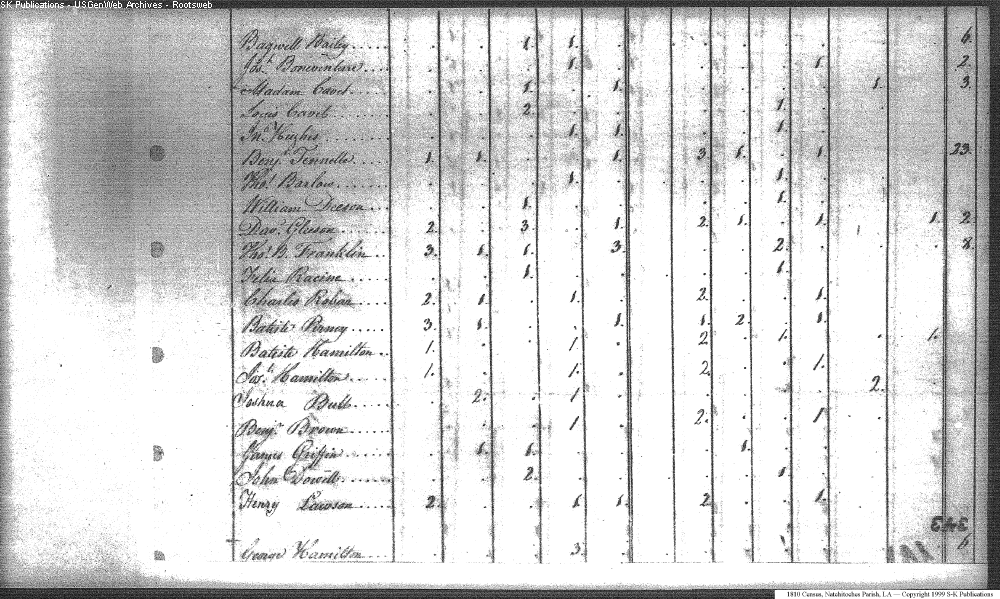 SK Publications - USGenWeb Archives - Rootsweb
Bagwell Bailey...... . . 1. 1. . . . . . . . . 6.
Jos. Boneventure.... . . . 1. . . . . . 1. . . 2.
Madam Cavet..... . . 1. . 1. . . . . . 1. . 3.
Louis Cavet..... . . 2. . . . . . 1. . . . .
Jno. Hughes..... . . . 1. 1. . . . 1. . . . .
Benj. Fennells.... 1. 1. . . 1. . 3. 1. . 1. . . 23.
Thos. Barlow..... . . . 1. . . . . 1. . . . .
William Deeson... . . 1. . . . . . 1. . . . .
Dav. Gleeson..... 2. . 3. . 1. . 2. 1. . 1. . 1. 2.
Thos. B. Franklin.. 3. 1. 1. . 3. . . . 2. . . . 8.
Felix Racine..... . . 1. . . . . . 1. . . . .
Charles Roban.... 2. 1. . 1. . . 2. . . 1. . . .
Batiste Perney..... 3. 1. . . 1. . 1. 2. . 1. . . .
Batiste Hamilton.. 1. . . 1. . . 2 . 1. . . 1. .
Jos. Hamilton.... 1. . . 1. . . 2. . . 1. . . .
Joshua Bull..... . 2. . 1 . . . . . . 2. . .
Benj. Brown..... . . . 1 . . 2. . . 1 . . .
James Griffin.... . 1. 1. . . . . 1. . . . . .
John Dowell..... . . 2. . . . . . 1. . . . .
Henry Lawson.... 2. . . 1. 1. . 2. . . 1. . . .
343
George Hamilton.... . . . 3. . . . . . . . . 6
1810 Census, Natchitoches Parish, LA — Copyright 1999 S-K Publications